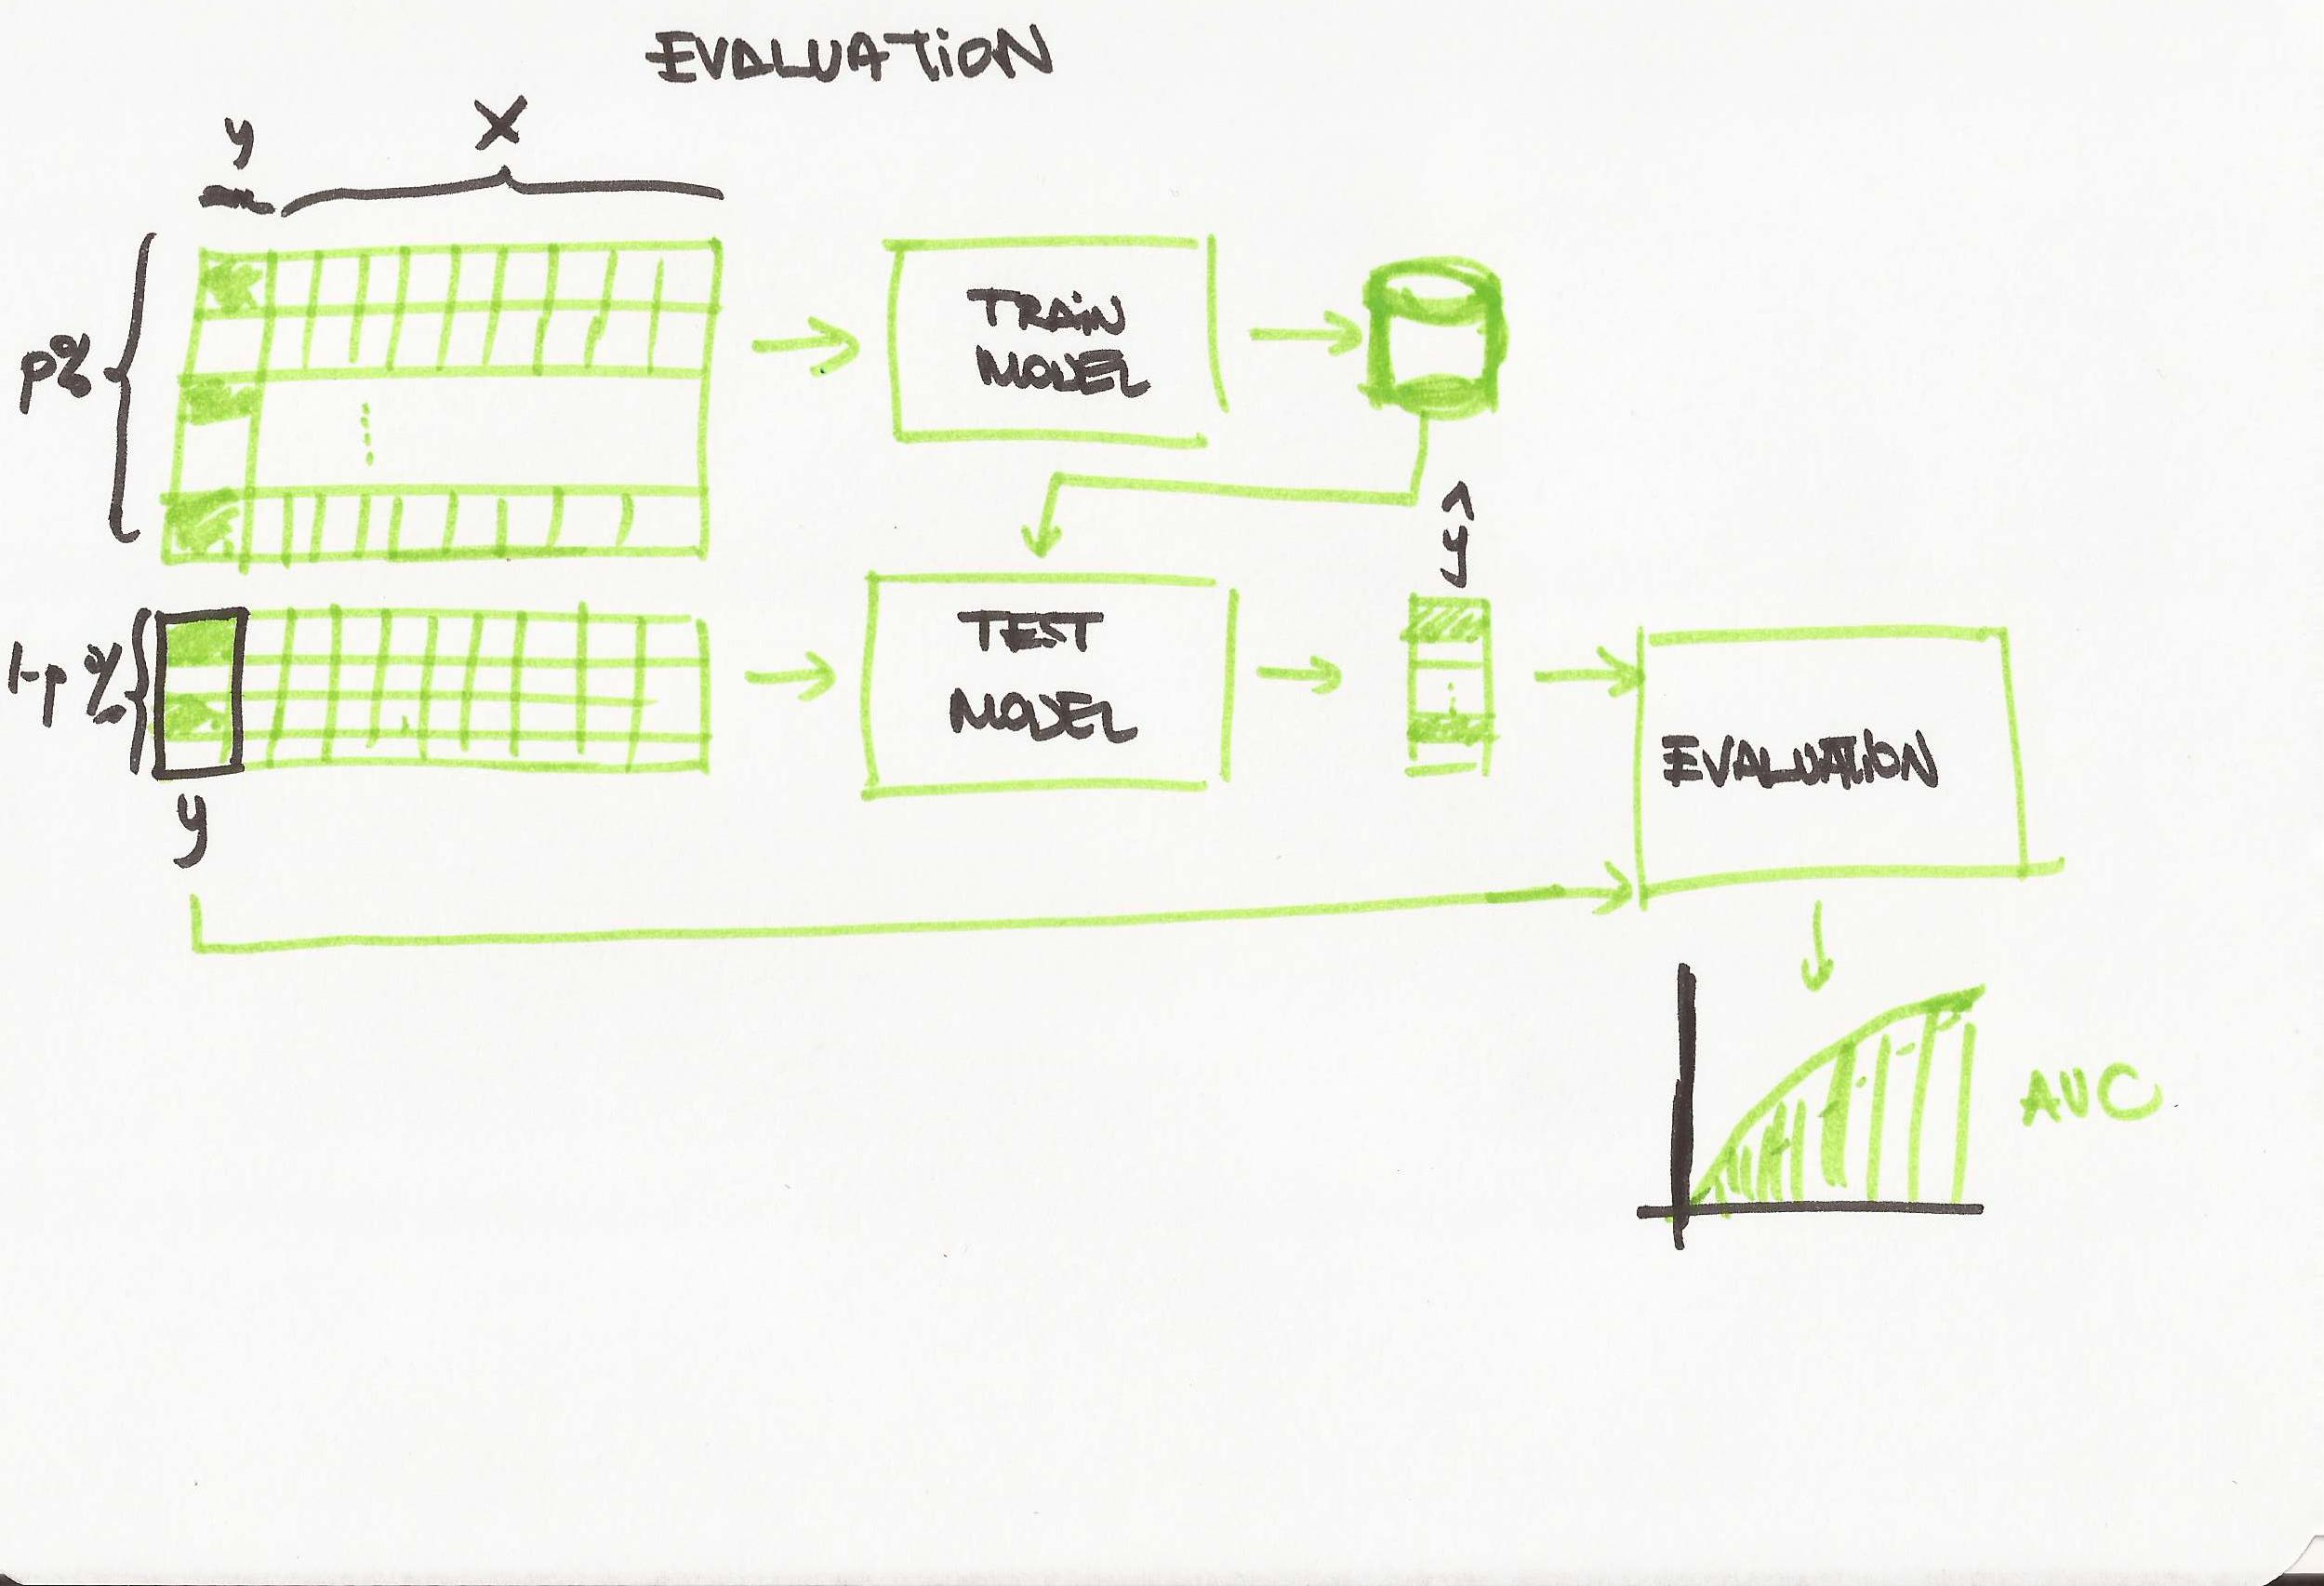 EVALUATION
y
X
p%
TRAIN
MODEL
ŷ
1-p %
TEST
MODEL
EVALUATION
y
AUC